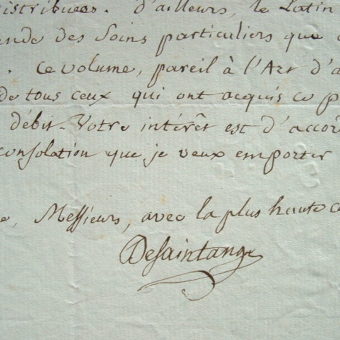 distribuées. d'ailleurs, le Latin
ande des Soins particuliers que
. Ce volume, pareil à l'Art d'a
de tous ceux qui ont acquis ce p
débit. Votre intérêt est d'accor
consolation que je veux emporter
, Messieurs, avec la plus haute co
DeSaintange